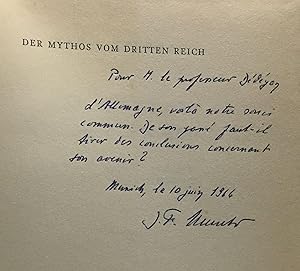 DER MYTHOS VOM DRITTEN REICH
Pour M. le professeur Dédéyan
d'Allemagne, voilà notre souci
commun. De son passé faut-il
tirer des conclusions concernant
son avenir ?
Munich, le 10 juin 1966
J. F.